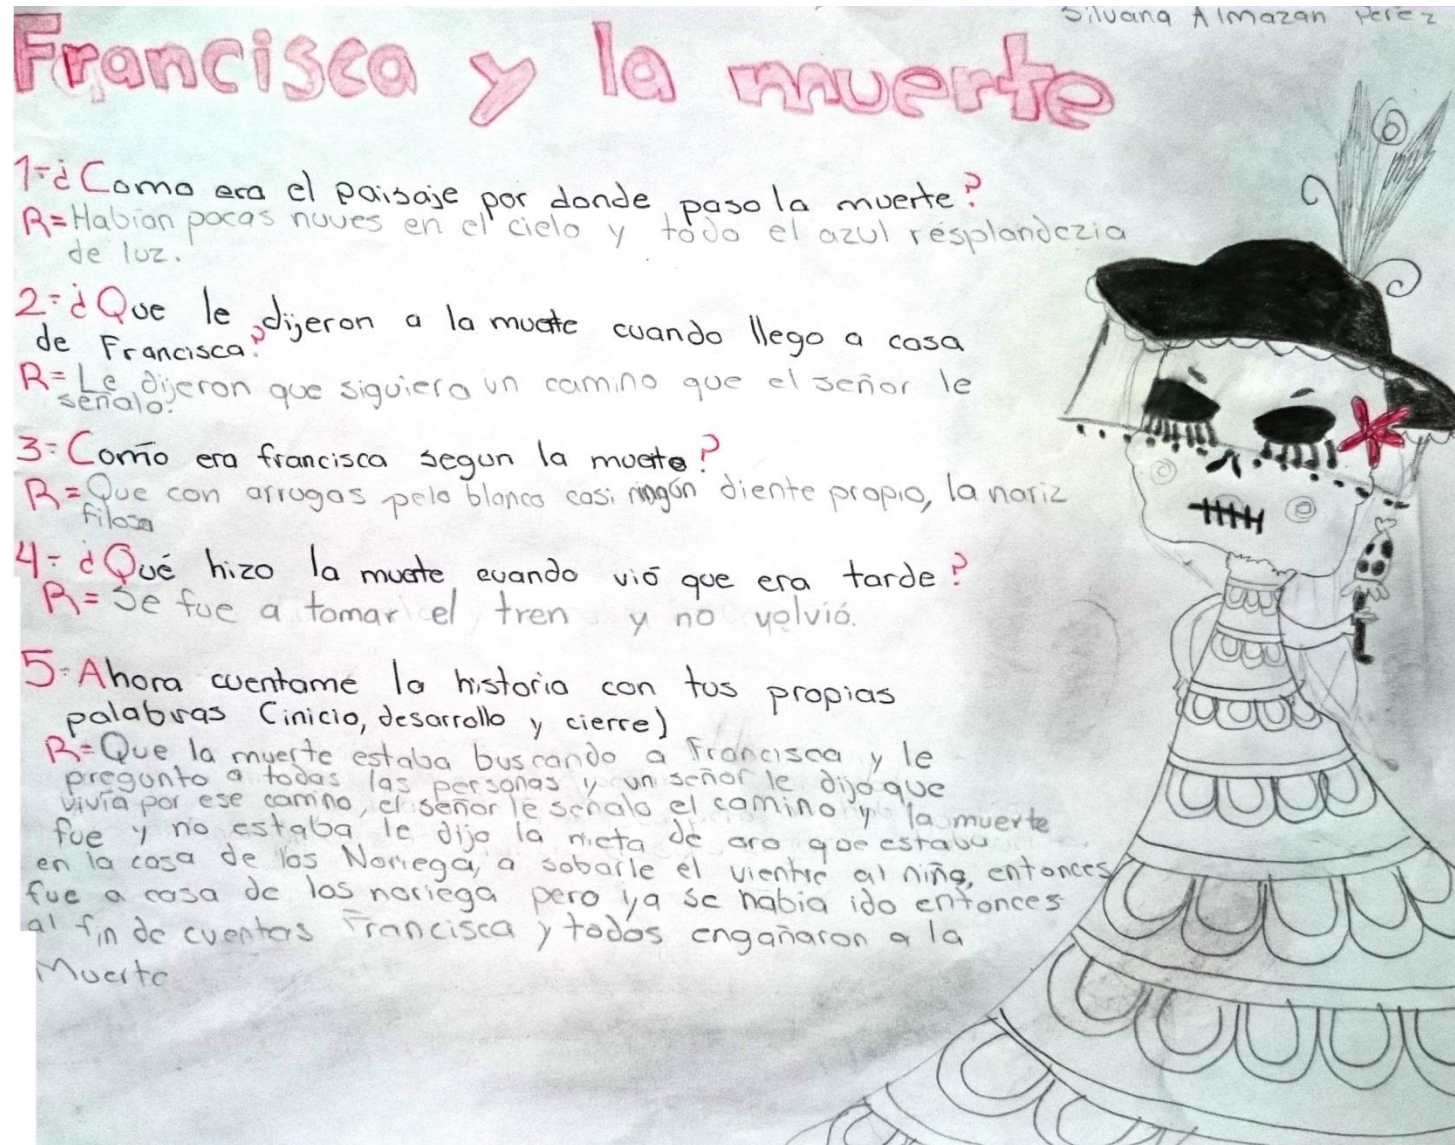 Silvana Almazan Perez
Francisca y la muerte
1-¿Como era el paisaje por donde paso la muerte?
R=Habian pocas nuves en el cielo y todo el azul resplandezia
de luz.
2-¿Que le dijeron a la muete cuando llego a casa
de Francisca?
R=Le dijeron que siguiera un camino que el señor le
señalo.
3-Como era francisca segun la muete?
R=Que con arrugas pelo blanco casi ningún diente propio, la nariz
filosa
4-¿Qué hizo la muete cuando vió que era tarde?
R=Se fue a tomar el tren y no volvió.
5-Ahora cuentame la historia con tus propias
palabras (inicio, desarrollo y cierre)
R=Que la muerte estaba buscando a Francisca y le
pregunto a todas las personas y un señor le dijo que
vivía por ese camino, el señor le señalo el camino y la muerte
fue y no estaba le dijo la nieta de que estaba
en la casa de los Noriega, a sobarle el vientre al niño, entonces
fue a casa de los noriega pero ya se habia ido entonces
al fin de cuentas Francisca y todos engañaron a la
Muerte